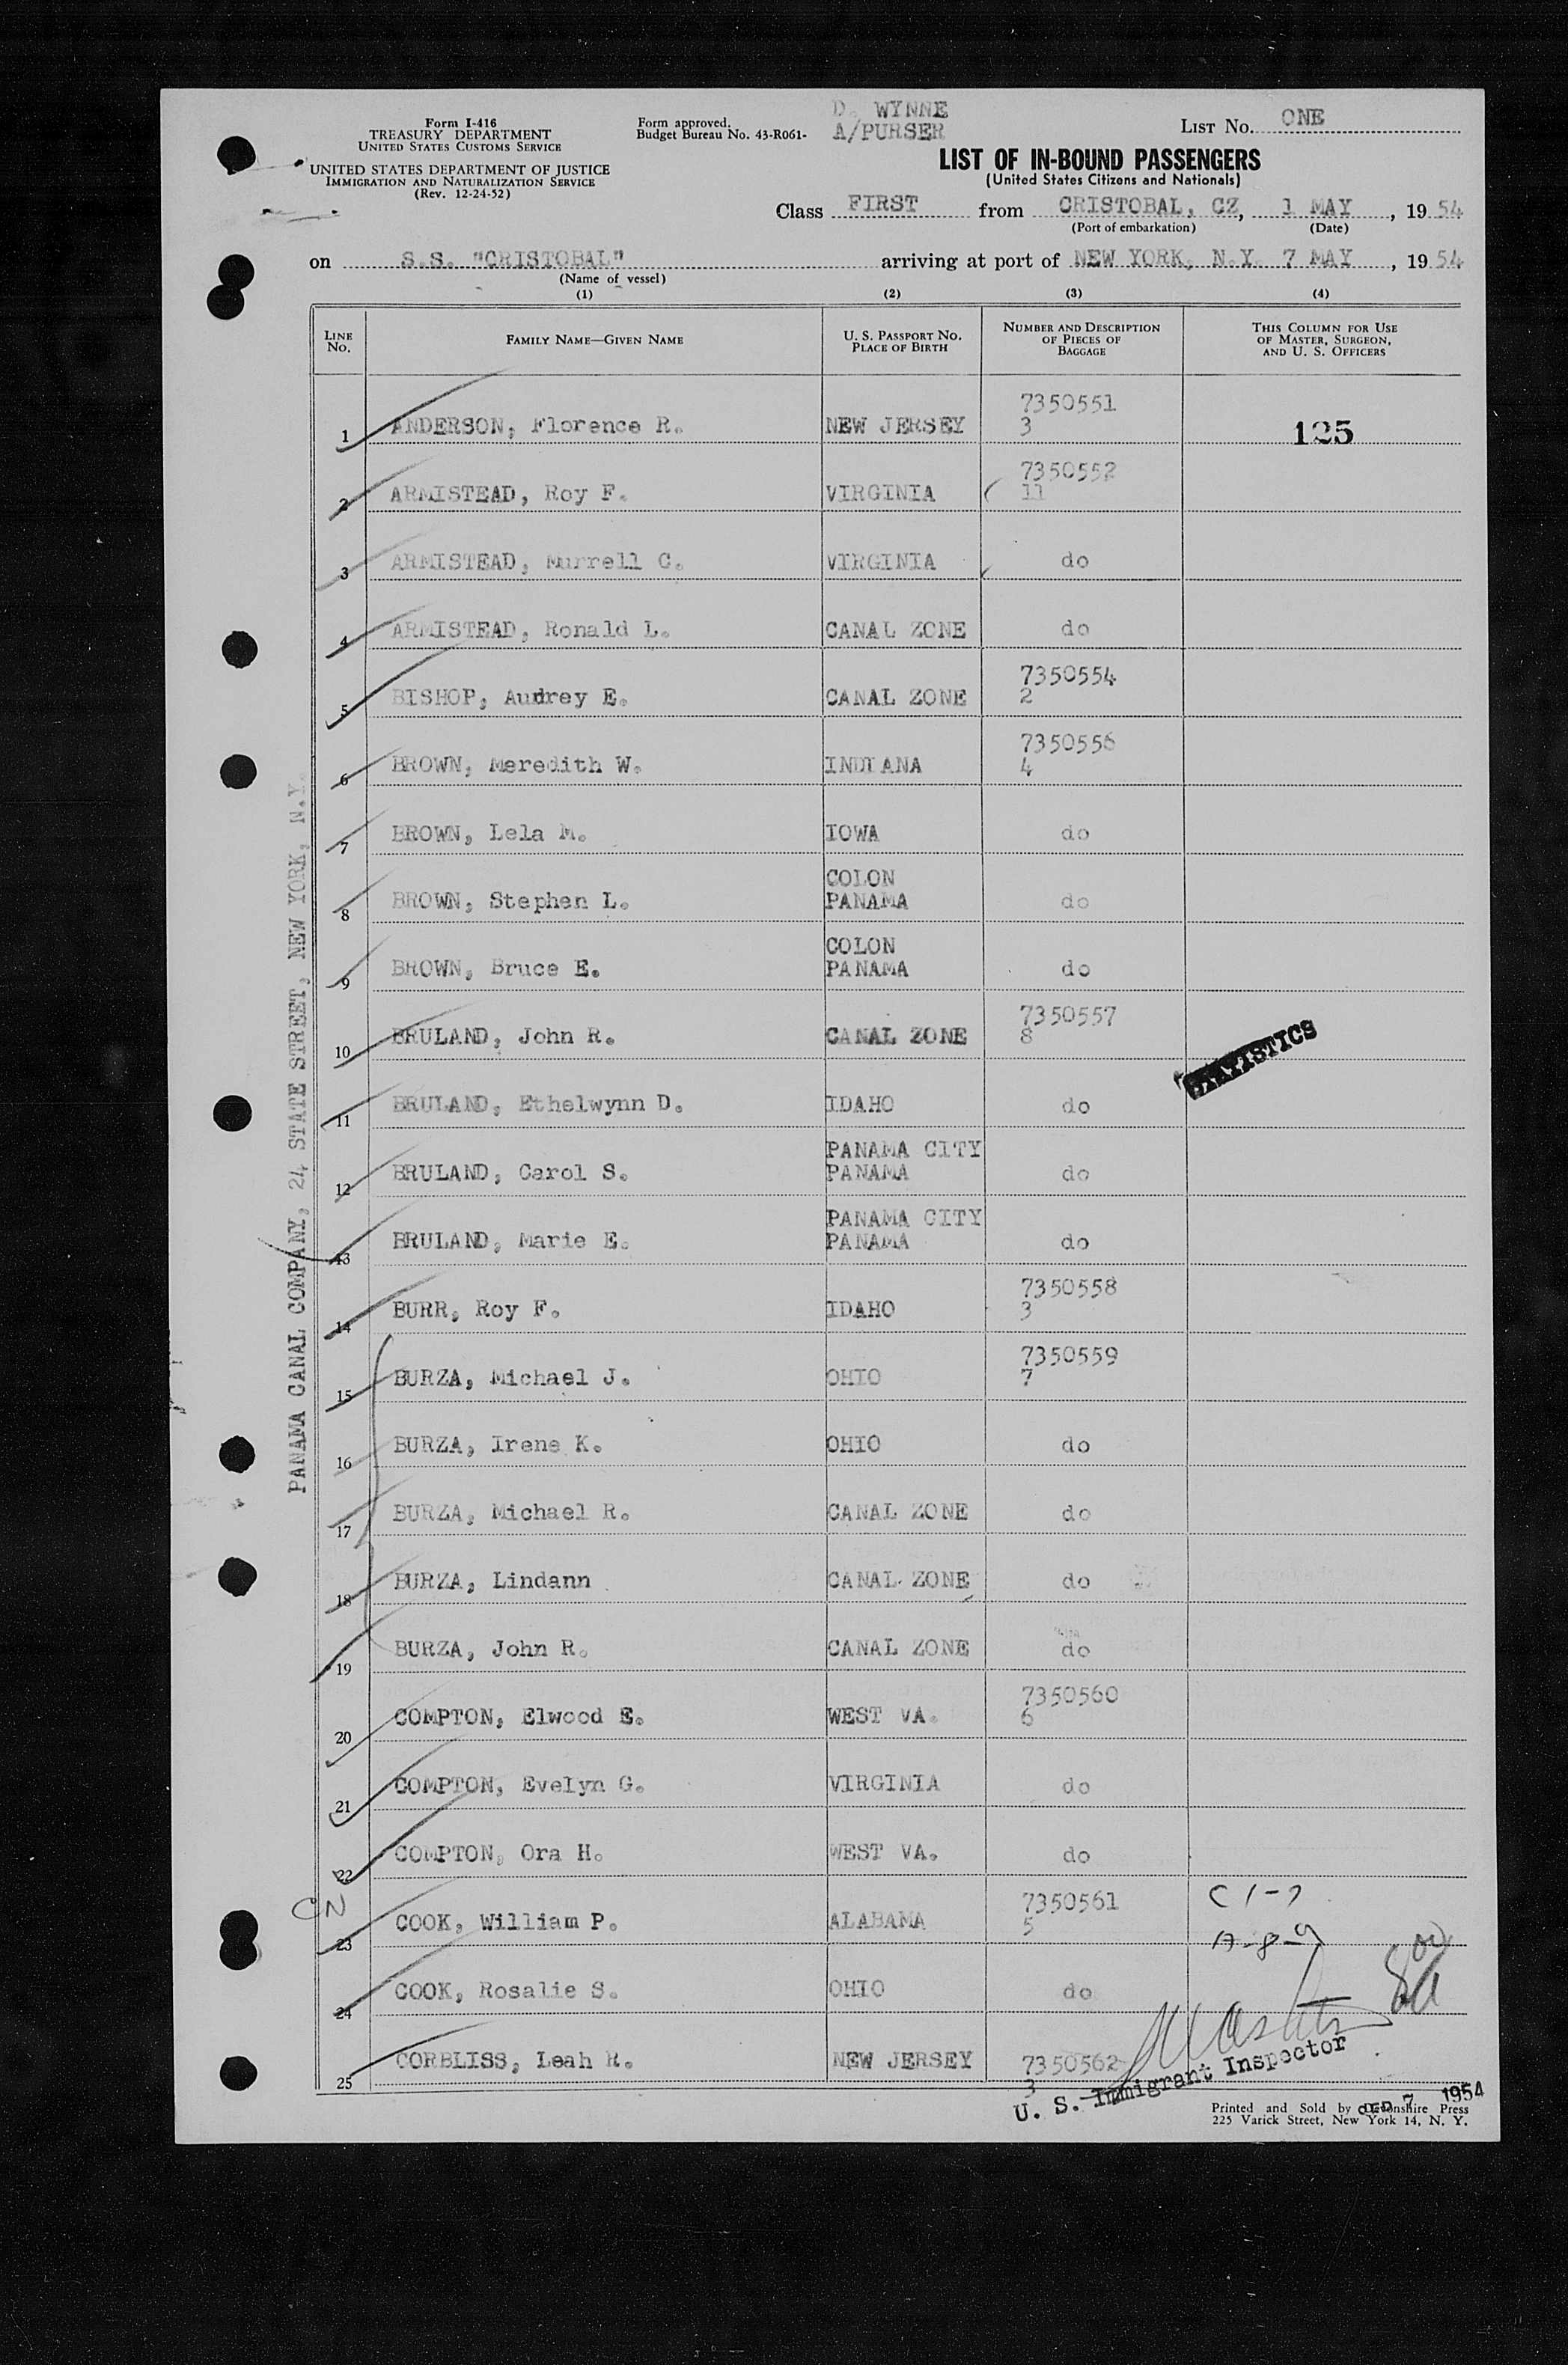 Form I-416
TREASURY DEPARTMENT
UNITED STATES CUSTOMS SERVICE
UNITED STATES DEPARTMENT OF JUSTICE
IMMIGRATION AND NATURALIZATION SERVICE
(Rev. 12-24-52)
Form approved.
Budget Bureau No. 43-R061-
D. WYNNE
A/PURSER
LIST No. ONE
LIST OF IN-BOUND PASSENGERS
(United States Citizens and Nationals)
Class FIRST from CRISTOBAL, CZ, 1 MAY, 1954
(Port of embarkation) (Date)
on S.S. "CRISTOBAL" arriving at port of NEW YORK, N.Y. 7 MAY, 1954
(Name of vessel)
(1) (2) (3) (4)
LINE NO. FAMILY NAME—GIVEN NAME U. S. PASSPORT NO. PLACE OF BIRTH NUMBER AND DESCRIPTION OF PIECES OF BAGGAGE THIS COLUMN FOR USE OF MASTER, SURGEON, AND U. S. OFFICERS
7350551
1 ANDERSON, Florence R. NEW JERSEY 3 125
7350552
2 ARMISTEAD, Roy F. VIRGINIA 11
3 ARMISTEAD, Murrell C. VIRGINIA do
4 ARMISTEAD, Ronald L. CANAL ZONE do
7350554
5 BISHOP, Audrey E. CANAL ZONE 2
7350556
6 BROWN, Meredith W. INDIANA 4
7 BROWN, Lela M. IOWA do
COLON
8 BROWN, Stephen L. PANAMA do
COLON
9 BROWN, Bruce E. PANAMA do
7350557
10 BRULAND, John R. CANAL ZONE 8
STATISTICS
11 BRULAND, Ethelwynn D. IDAHO do
PANAMA CITY
12 BRULAND, Carol S. PANAMA do
PANAMA CITY
13 BRULAND, Marie E. PANAMA do
7350558
14 BURR, Roy F. IDAHO 3
7350559
15 BURZA, Michael J. OHIO 7
16 BURZA, Irene K. OHIO do
17 BURZA, Michael R. CANAL ZONE do
18 BURZA, Lindann CANAL ZONE do
19 BURZA, John R. CANAL ZONE do
7350560
20 COMPTON, Elwood E. WEST VA. 6
21 COMPTON, Evelyn G. VIRGINIA do
22 COMPTON, Ora H. WEST VA. do
CN 7350561
23 COOK, William P. ALABAMA 5
24 COOK, Rosalie S. OHIO do
25 CORBLISS, Leah R. NEW JERSEY 7350562
3
U. S. Immigrant Inspector
7 1954
Printed and Sold by Devonshire Press
225 Varick Street, New York 14, N. Y.
PANAMA CANAL COMPANY, 24 STATE STREET, NEW YORK, N.Y.